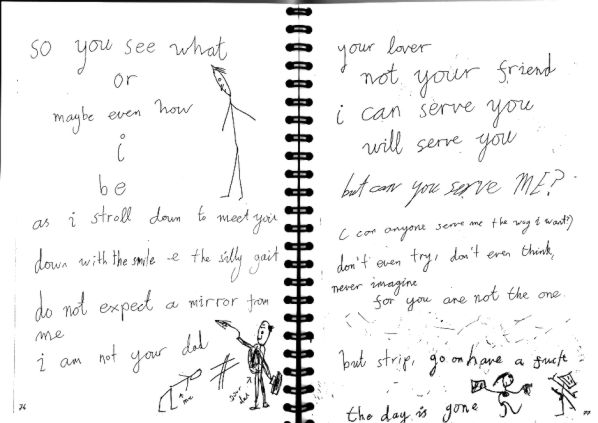 so you see what
or
maybe even how
i
be
as i stroll down to meet you
down with the smile & the silly gait
do not expect a mirror from
me
i am not your dad
me
your dad
26
your lover
not your friend
i can serve you
will serve you
but can you serve ME?
(can anyone serve me the way i want?)
don't even try, don't even think,
never imagine
for you are not the one.
but strip, go on have a fuck
the day is gone